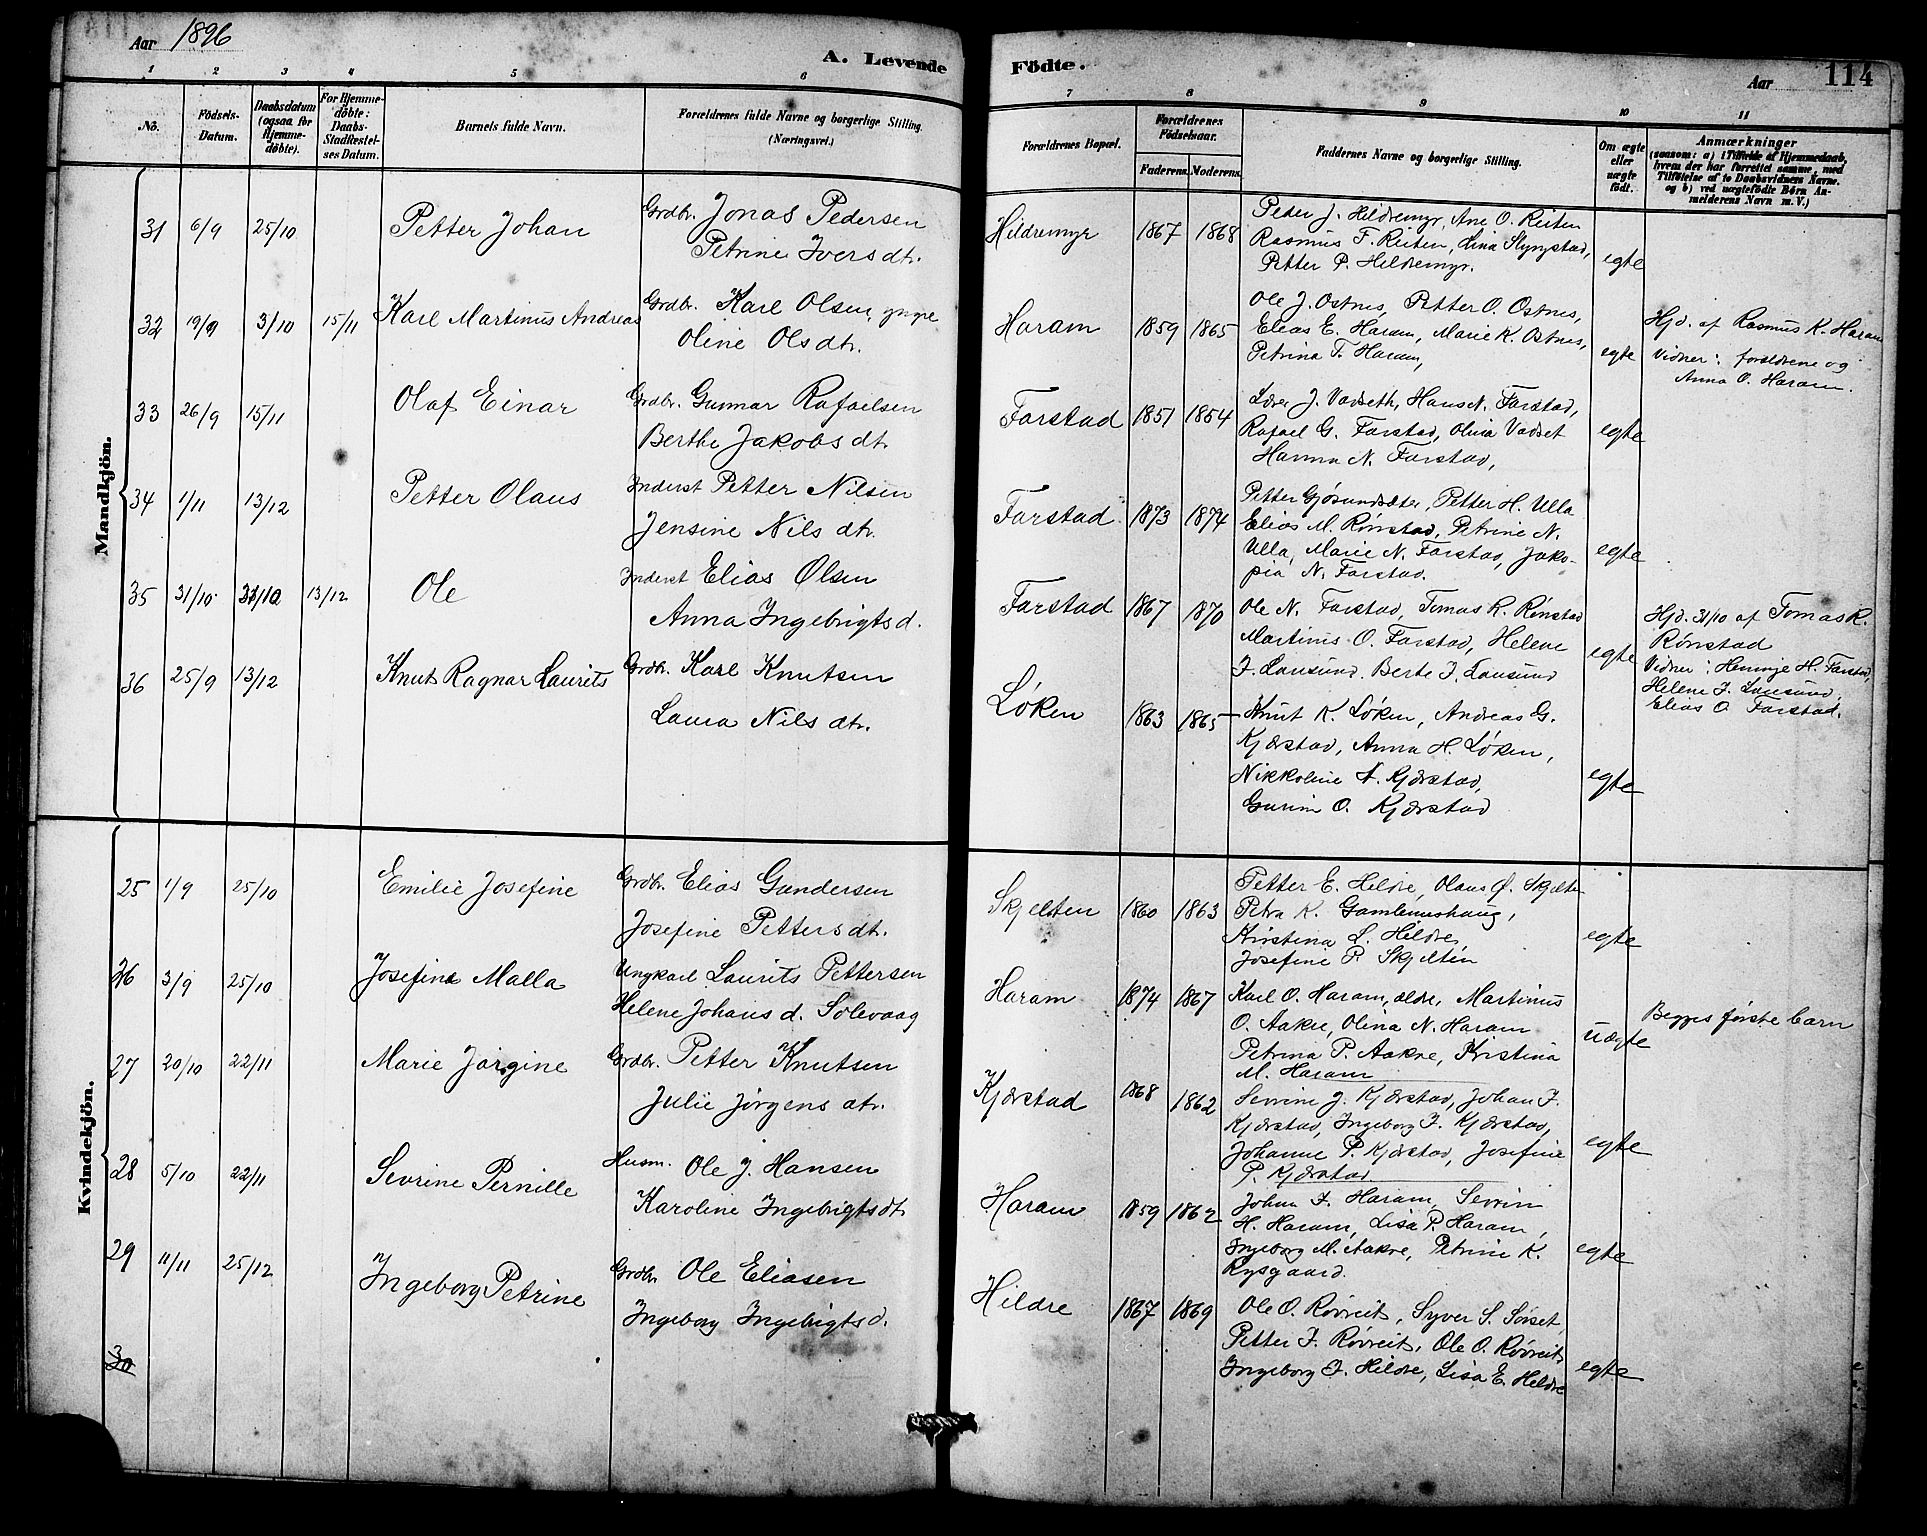 Aar 1896
A. Levende Födte.
Aar 114
1 2 3 4 5 6 7 8 9 10 11
No.
Födsels-Datum.
Daabsdatum (ogsaa for Hjemmedöbte).
For Hjemmedöbte: Daabs-Stadfæstelses Datum.
Barnets fulde Navn.
Forældrenes fulde Navne og borgerlige Stilling. (Næringsvei.)
Forældrenes Bopæl.
Forældrenes Födselsaar.
Faderens. Moderens.
Faddernes Navne og borgerlige Stilling.
Om ægte eller uægte födt.
Anmærkninger
(saasom: a) i Tilfælde af Hjemmedaab, hvem der har forrettet samme, med Tilföielse af to Daabsvidners Navne. og b) ved uægtefödte Börn Anmelderens Navn m. V.)
Mandkjön.
31 6/9 25/10 Petter Johan
Grdbr. Jonas Pedersen
Petrine Iversdtr.
Hildremyr 1867 1868
Peder J. Hildremyr, Ane O. Reiten
Rasmus F. Reiten, Lina Slyngstad,
Petter P. Hildremyr.
egte
32 19/9 3/10 15/11 Karl Martinus Andreas
Grdbr. Karl Olsen, yngre
Oline Olsdtr.
Haram 1859 1865
Ole J. Ostnes, Petter O. Ostnes,
Elias E. Haram, Marie K. Ostnes,
Petrina T. Haram,
egte
Hjd. af Rasmus K. Haram
Vidner: forældrene og
Anna O. Haram.
33 26/9 15/11 Olaf Einar
Grdbr. Gunnar Rafaelsen
Berthe Jakobsdt.
Farstad 1851 1854
Lærer J. Vadseth, Hans N. Farstad,
Rafael G. Farstad, Olina Vadset
Hanna N. Farstad,
egte
34 1/11 13/12 Petter Olaus
Inderst Petter Nilsen
Jensine Nilsdtr.
Farstad 1873 1874
Petter Gjøsundsæter, Petter H. Ulla
Elias M. Rønstad, Petrine N.
Ulla, Marie N. Farstad, Jako-
pia N. Farstad.
egte
35 31/10 31/10 13/12 Ole
Inderst Elias Olsen
Anna Ingebrigtsd.
Farstad 1867 1870
Ole N. Farstad, Tomas R. Rønstad
Martinus O. Farstad, Helene
J. Lausund. Berte J. Lausund
egte
Hjd. 31/10 af Tomas R.
Rønstad
Vidner: Heminje H. Farstad,
Helene J. Lausund,
Elias O. Farstad.
36 25/9 13/12 Knut Ragnar Laurits
Grdbr. Karl Knutsen
Laura Nilsdtr.
Løken 1863 1865
Knut K. Løken, Andreas G.
Kjærstad, Anna H. Løken,
Nikkoline A. Kjærstad,
Gurine O. Kjærstad
egte
Kvindekjön.
25 1/9 25/10 Emilie Josefine
Grdbr. Elias Gundersen
Josefine Pettersdt.
Skjelten 1860 1863
Petter E. Hildre, Olaus Ø. Skjelten
Petra K. Gamlemshaug,
Kristina L. Hildre,
Josefine P. Skjelten
egte
26 3/9 25/10 Josefine Malla
Ungkarl Laurits Pettersen
Helene Johansd. Solevaag
Haram 1874 1867
Karl O. Haram, ældre, Martinus
O. Aakre, Olina N. Haram
Petrina P. Aakre, Kristina
M. Haram
uægte
Begges første barn
27 20/10 22/11 Marie Jørgine
Grdbr. Petter Knutsen
Julie Jørgensdtr.
Kjærstad 1868 1862
Sevrine J. Kjærstad, Johan F.
Kjærstad, Ingeborg J. Kjærstad,
Johanne P. Kjærstad, Josefine
P. Kjærstad
egte
28 5/10 22/11 Sevrine Pernille
Husm. Ole J. Hansen
Karoline Ingebrigtsdt.
Haram 1859 1862
Johan F. Haram, Sevrin
H. Haram, Lisa P. Haram,
Ingeborg M. Aakre, Petrine K.
Rysgaard.
egte
29 11/11 25/12 Ingeborg Petrine
Grdbr. Ole Eliasen
Ingeborg Ingebrigtsd.
Hildre 1867 1869
Ole O. Røvreit, Syver S. Sørset,
Petter J. Røvreit, Ole O. Røvreit,
Ingeborg J. Hildre, Lisa E. Hildre
egte
30